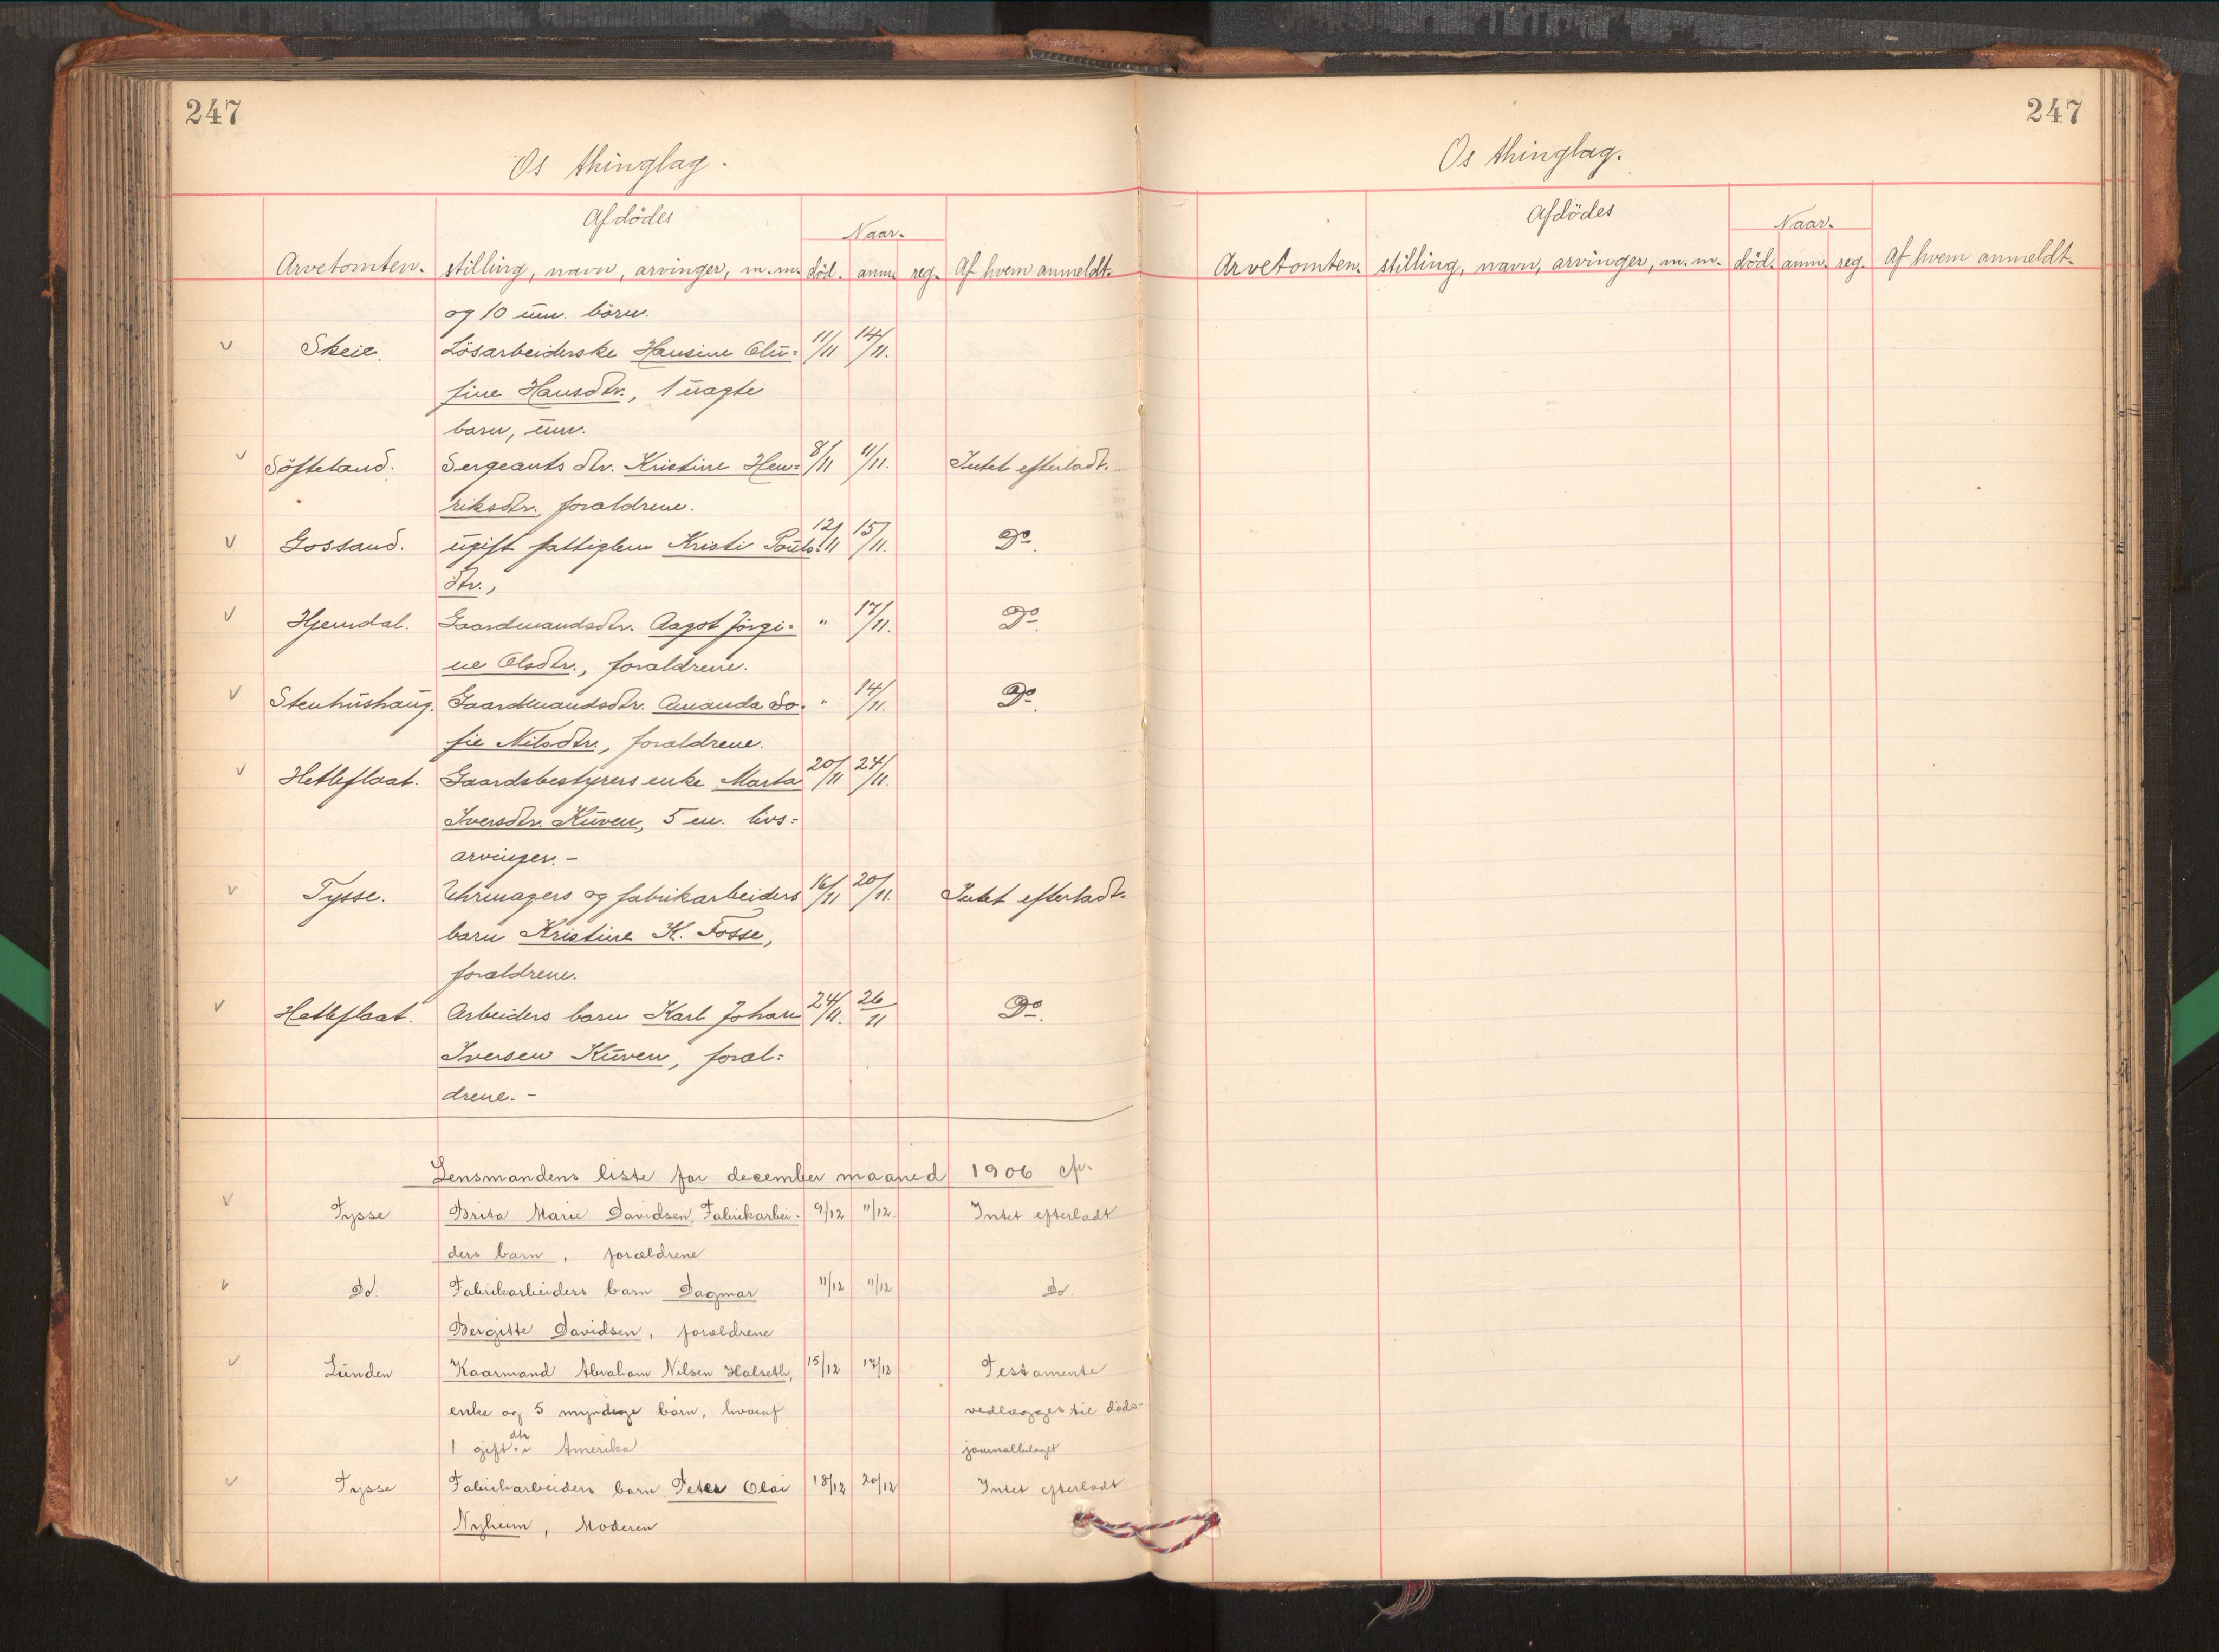 247
Os thinglag.
Afdödes
Naar.
Arvetomten. stilling, navn, arvinger, m.m. död. anm. reg. Af hvem anmeldt.
og 10 um. börn.
v Skeie. Lösarbeiderske Hansine Olu= 11/11 14/11.
fine Hansdtr., 1 uægte
barn, um.
v Söfteland. Sergeants dtr. Kristine Hen= 8/11 11/11. Intet efterladt.
riksdtr., forældrene.
v Gossand. ugift fattiglem Kristi Pouls= 12/11 15/11. Do.
dtr.,
v Hjemdal. Gaardmandsdtr. Aagot Jörgi= " 17/11. Do.
ne Olsdtr., forældrene.
v Stenhushaug. Gaardmandsdtr. Amanda So= " 14/11. Do.
fie Nilsdtr., forældrene.
v Hetleflaat. Gaardsbestyrers enke Marta 20/11 24/11.
Iversdtr. Kuven, 5 m. livs=
arvinger. -
v Tysse. Uhrmagers og fabrikarbeiders 16/11 20/11. Intet efterladt.
barn Kristine K. Fosse,
forældrene.
v Hetleflaat. Arbeiders barn Karl Johan 24/11. 26/11 Do.
Iversen Kuven, foræl=
drene. -
Lensmandens liste for december maaned 1906
v Tysse Brita Marie Davidsen, Fabrikarbei- 9/12 11/12. Intet efterladt
ders barn, forældrene
v Do. Fabrikarbeiders barn Dagmar 11/12 11/12 Do.
Bergitte Davidsen, forældrene
v Lunden Kaarmand Abraham Nilsen Halseth, 15/12 17/12 Testamente
enke og 5 myndige börn, hvoraf vedlægges til döds-
1 gift dtr i Amerika journalbilaget
v Tysse Fabrikarbeiders barn Peter Olai 18/12 20/12 Intet efterladt
Nyheim, Moderen
247
Os thinglag.
Afdödes
Naar.
Arvetomten. stilling, navn, arvinger, m.m. död. anm. reg. Af hvem anmeldt.